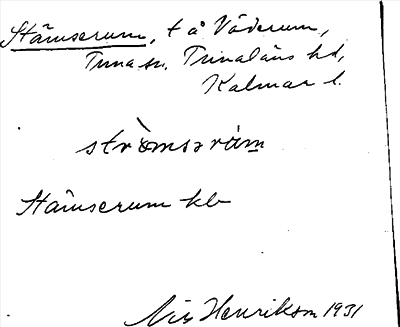 Stämserum, t å Väderum,
Tuna sn. Tunaläns hd,
Kalmar l.
strömsəråm
Stämserum kb
Nils Henrikson 1931